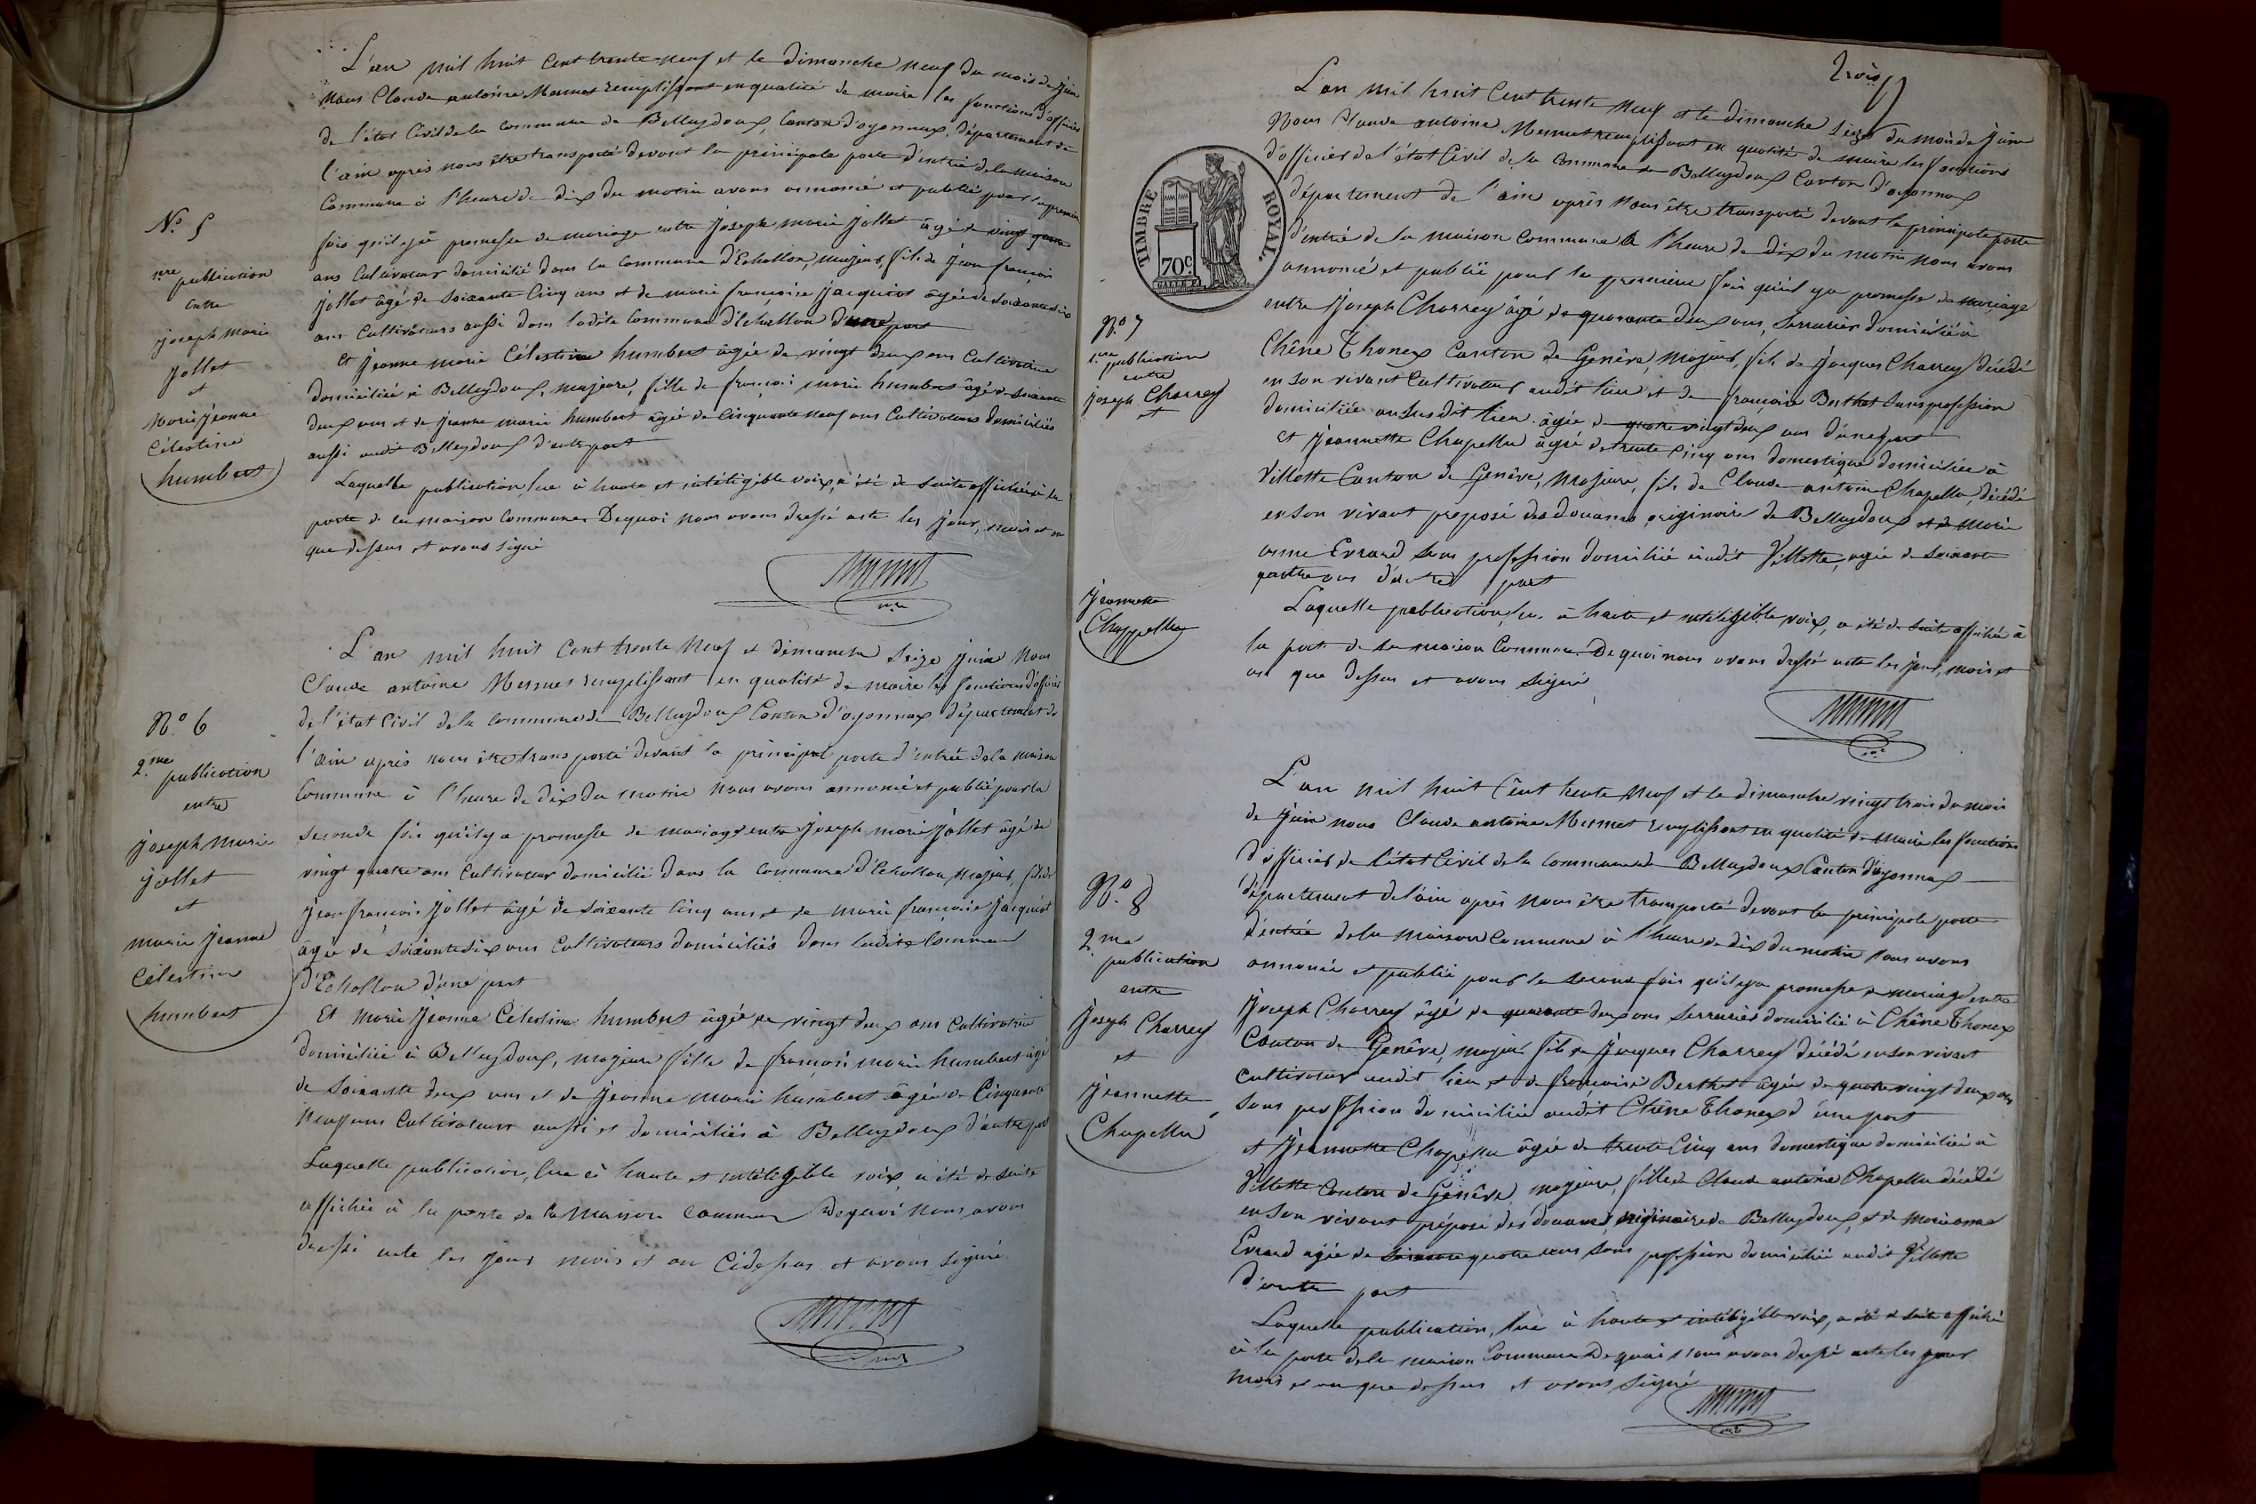 L'an mil huit cent trente neuf et le dimanche neuf du mois de juin
Nous Claude antoine Mermet remplissant en qualité de maire les fonctions d'officier
de l'état Civil de la commune de Belleydoux, Canton d'oyonnax, département de
l'ain après nous être transporté devant la principale porte d'entrée de la maison
Commune à l'heure de dix du matin avons annoncé et publié pour la première
fois qu'il y a promesse de mariage entre Joseph marie Jollet âgé de vingt quatre
ans Cultivateur domicilié dans la commune d'Echallon, majeur, fils de Jean françois
Jollet âgé de soixante cinq ans et de marie françoise Jacquiot âgée de soixante six
ans Cultivateurs aussi dans ladite Commune d'Echallon d'une part
Et Jeanne marie Célestine humbert âgée de vingt deux ans Cultivatrice
domiciliée à Belleydoux, majeure, fille de françois marie humbert âgé de soixante
deux ans et de Jeanne marie humbert âgée de Cinquante neuf ans Cultivateurs domiciliés
aussi audit Belleydoux d'autre part
Laquelle publication, lue à haute et intéligible voix, a été de suite affichée à la
porte de la maison Commune. De quoi nous avons dressé acte les jour, mois et an
que dessus et avons signé
Mermet
N.º 5
1re publication
entre
joseph Marie
Jollet
et
Marie Jeanne
Célestine
humbert
L'an mil huit Cent trente Neuf et dimanche seize juin Nous
Claude antoine Mermet remplissant en qualité de maire les fonctions d'officier
de l'état Civil de la commune de Belleydoux Canton d'oyonnax département de
l'ain après nous être transporté devant la principal porte d'entrée de la maison
Commune à l'heure de dix du matin Nous avons annoncé et publié pour la
seconde fois qu'il y a promesse de mariage entre Joseph marie Jollet âgé de
vingt quatre ans Cultivateur domicilié dans la Commune d'Echallon, majeur, fils de
Jean françois Jollet âgé de soixante Cinq ans et de marie françoise Jacquiot
âgée de soixante six ans Cultivateurs domiciliés dans ladite Commune
d'Echallon d'une part
Et Marie Jeanne Célestine humbert âgée de vingt deux ans Cultivatrice
domiciliée à Belleydoux, majeure fille de françois marie humbert âgé
de soixante deux ans et de Jeanne marie humbert âgée de Cinquante
neuf ans Cultivateurs aussi et domiciliés à Belleydoux d'autre part
Laquelle publication, lue à haute et intéligible voix, a été de suite
affichée à la porte de la Maison Commune De quoi Nous avons
dressé acte les jour mois et an Cidessus et avons signé
Mermet
N.º 6
2.me publication
entre
joseph Marie
Jollet
et
marie Jeanne
Célestine
humbert
trois
TIMBRE ROYAL.
70c
L'an mil huit Cent trente Neuf et le dimanche seize du mois de Juin
Nous Claude antoine Mermet remplissant en qualité de maire les fonctions
d'officier de l'état Civil de la Commune de Belleydoux Canton d'oyonnax
département de l'ain après Nous être transporté devant la principale porte
d'entrée de la maison Commune à l'heure de dix du matin Nous avons
annoncé et publié pour la première fois qu'il y a promesse de mariage
entre Joseph Charrey âgé de quarante deux ans, Serrurier domicilié à
Chêne Thonex Canton de Genêve, Majeur, fils de Jacques Charrey décédé
en son vivant Cultivateur audit lieu et de françoise Berthet sans profession
domiciliée au susdit lieu âgée de quatre vingt deux ans d'une part
Et Jeannette Chapellu âgée de trente Cinq ans domestique domiciliée à
Villette Canton de Genêve, Majeure, file de Claude antoine Chapellu, décédé
en son vivant preposé des douanes originaire de Belleydoux et de Marie
anne Evrard sans profession domiciliée audit Villette, agée de soixante
quatre ans d'autre part
Laquelle publication, lue à haute et intéligible voix, a été de suite affichée à
la porte de la maison Commune. De quoi nous avons dressé acte les jour, mois et
an que dessus et avons signé
Mermet
N.º 7
1.re publication
entre
joseph Charrey
et
Jeannette
Chappellu
L'an mil huit Cent trente Neuf et le dimanche vingt trois du mois
de Juin nous Claude antoine Mermet remplissant en qualité de Maire les fonctions
d'officier de l'état Civil de la Commune de Belleydoux Canton d'oyonnax
département de l'ain après Nous être transporté devant la principale porte
d'entrée de la Maison Commune à l'heure de dix du matin Nous avons
annoncé et publié pour la seconde fois qu'il y a promesse de mariage entre
Joseph Charrey âgé de quarante deux ans Serrurier domicilié à Chêne Thonex
Canton de Genêve, majeur fils de Jacques Charrey décédé en son vivant
Cultivateur audit lieu et de françoise Berthet âgée de quatre vingt deux ans
Sans profession domiciliée audit Chêne Thonex d'une part
et Jeannette Chapellu âgée de trente Cinq ans domestique domiciliée à
Villette Canton de Genêve, majeure, fille de Claude antoine Chapellu décédé
en son vivant préposé des douanes, originaire de Belleydoux, et de Marie anne
Evrard agée de soixante quatre ans sans profession domiciliée audit Villette
d'autre part
Laquelle publication, lue à haute et intéligible voix, a été de suite affichée
à la porte de la maison Commune De quoi Nous avons dressé acte les jour
mois et an que dessus et avons signé
Mermet
N.º 8
2.me
publication
entre
Joseph Charrey
et
Jeannette
Chapellu